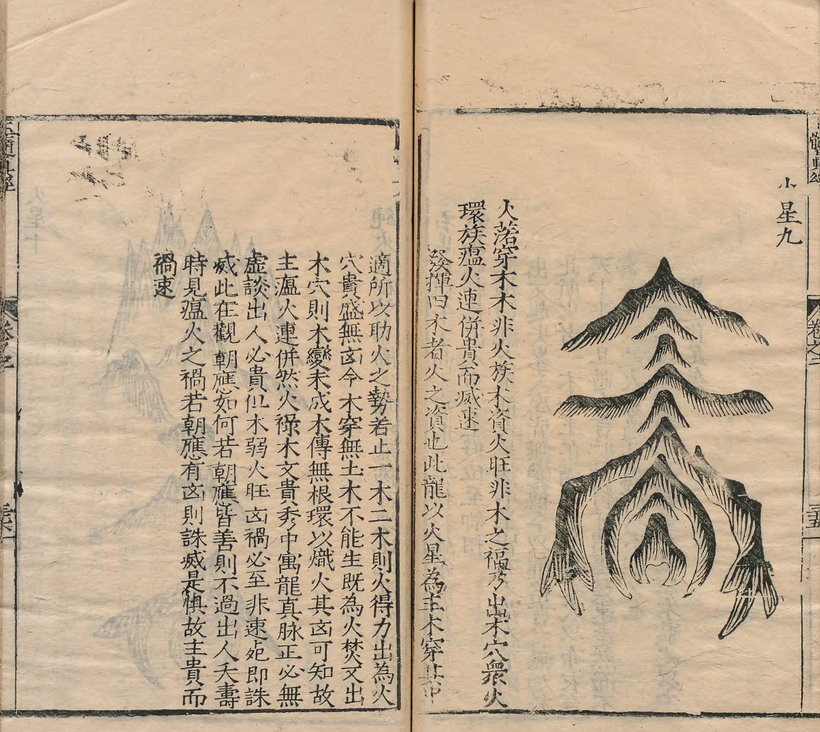 髓真經
卷之二
小星九
火落穿木木非火族木資火旺非木之福歹出木穴衆火
環族瘟火連併貴而滅速
發揮曰木者火之資也此龍以火星為主木穿其中
適所以助火之勢若止一木二木則火得力出為火
穴貴盛無凶今木穿無土木不能生既為火焚又出
木穴則木變未成木傳無根環以熾火其凶可知故
主瘟火連併然火祿木文貴秀中寓龍真脉正必無
虛談出人必貴但木弱火旺凶禍必至非速死即誅
滅此在觀朝應如何若朝應皆善則不過出人夭壽
時見瘟火之禍若朝應有凶則誅滅是惧故主貴而
禍速
髓真經